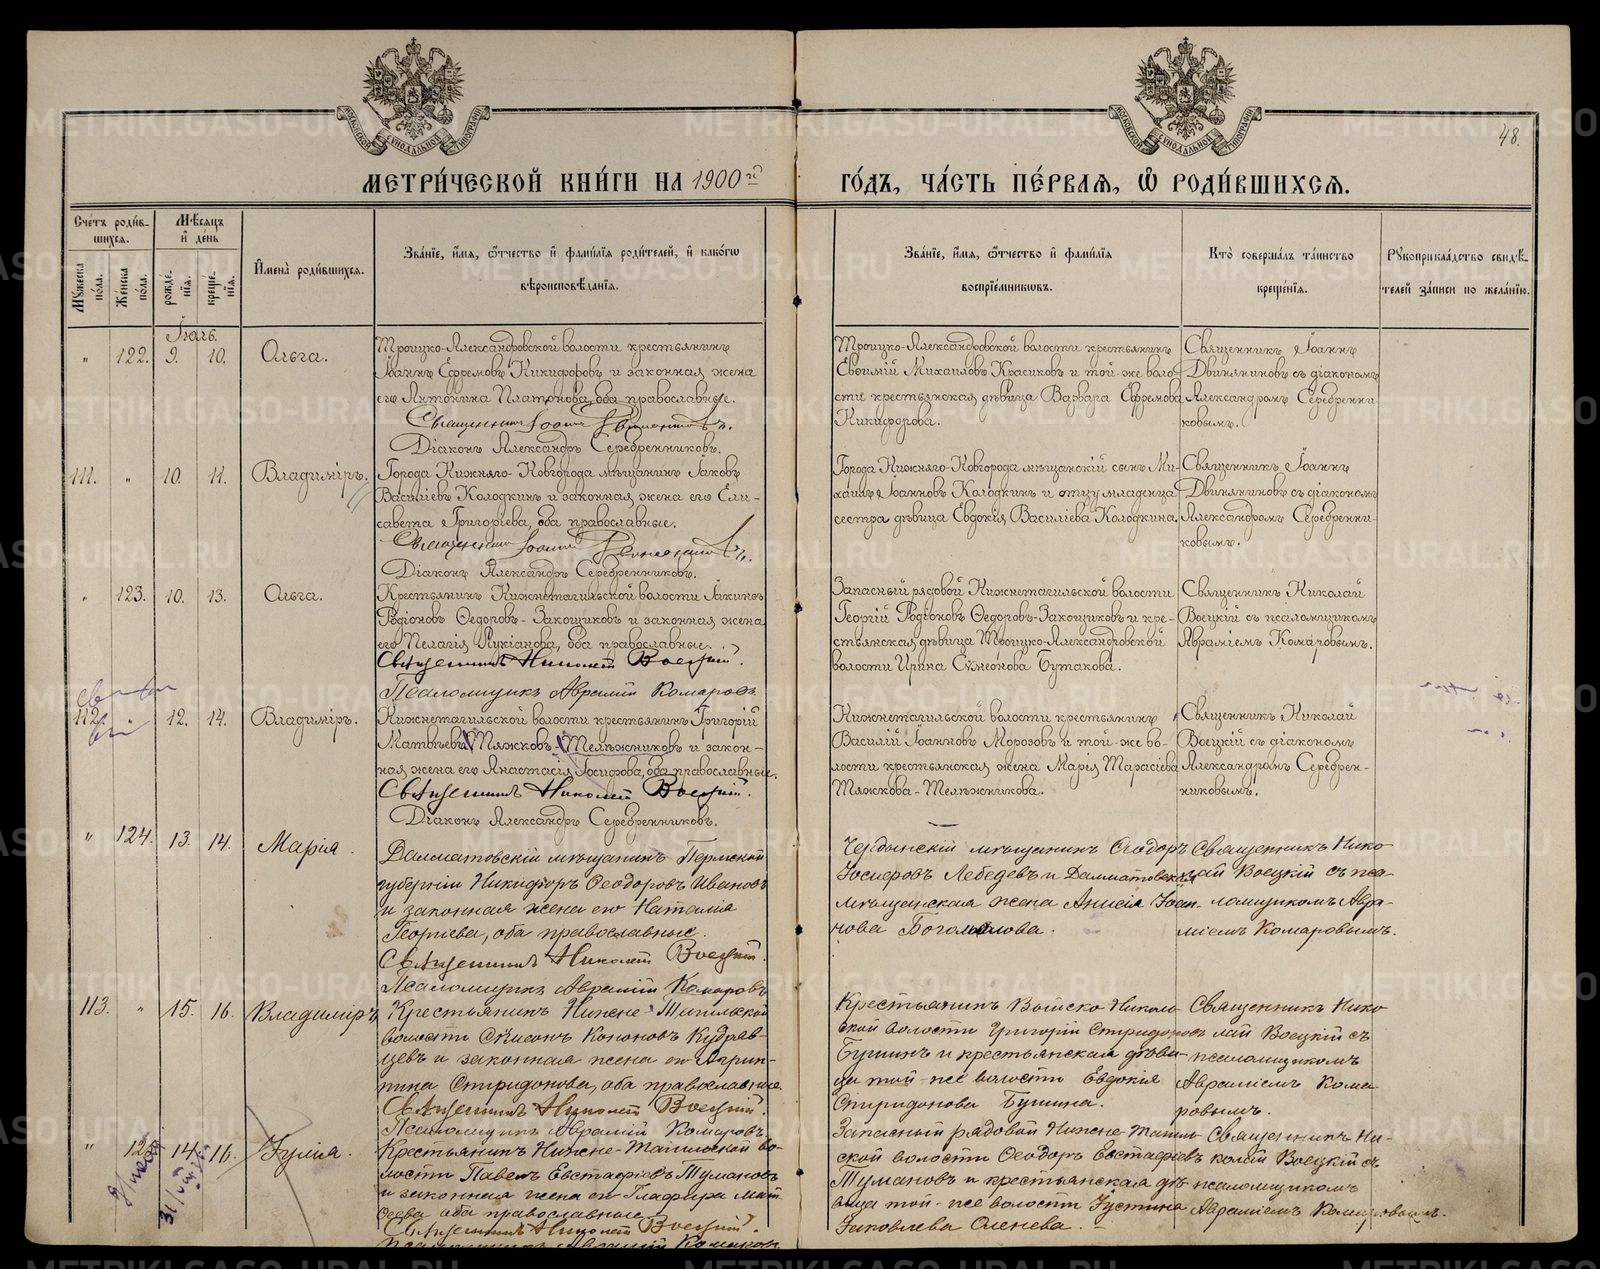 МЕТРИ́ЧЕСКОЙ КНИ́ГИ НА 1900 й
ГО́ДЪ, ЧА́СТЬ ПЕ́РВАѦ, Ѡ РОДИ́ВШИХСѦ.
48.
Сче́тъ роди́в-
шихсѧ.
Мѣ́сѧцъ
и҆ де́нь
Мꙋ́жеска по́ла.
Же́нска по́ла.
рожде́нїѧ.
креще́нїѧ.
И҆мена̀ роди́вшихсѧ.
Зва́нїе, и҆́мѧ, ѻ҆́тчество и҆ фами́лїѧ роди́телей, и҆ како́гѡ
вѣроисповѣ́данїѧ.
Зва́нїе, и҆́мѧ, ѻ҆́тчество и҆ фами́лїѧ
воспрїе́мникѡвъ.
Кто̀ соверша́лъ та́инство
креще́нїѧ.
Рꙋкоприкла́дство свидѣ́-
телей за́писи по жела́нїю.
Іюль.
" 122. 9. 10. Ольга.
Троицко-Александровской волости крестьянинъ
Іоаннъ Ефремовъ Никифоровъ и законная жена
его Антонина Платонова, оба православные.
Священникъ Іоаннъ Двиняниновъ.
Діаконъ Александръ Серебренниковъ.
Троицко-Александровской волости крестьянинъ
Евфимій Михаиловъ Красиковъ и той-же воло-
сти крестьянская дѣвица Варвара Ефремова
Никифорова.
Священникъ Іоаннъ
Двиняниновъ съ діакономъ
Александромъ Серебренни-
ковымъ.
111. " 10. 11. Владиміръ.
Города Нижняго-Новгорода мѣщанинъ Іаковъ
Василіевъ Колодкинъ и законная жена его Ели-
савета Григоріева, оба православные.
Священникъ Іоаннъ Двиняниновъ.
Діаконъ Александръ Серебренниковъ.
Города Нижняго-Новгорода мѣщанскій сынъ Ми-
хаилъ Іоанновъ Колодкинъ и отцу младенца
сестра дѣвица Евдокія Василіева Колодкина
Священникъ Іоаннъ
Двиняниновъ съ діакономъ
Александромъ Серебренни-
ковымъ.
" 123. 10. 13. Ольга.
Крестьянинъ Нижнетагильской волости Іакинѳъ
Родіоновъ Ѳедоровъ-Закощиковъ и законная жена
его Пелагія Лукіанова, оба православные.
Священникъ Николай Воецкій.
Псаломщикъ Аврамій Комаровъ
Запасный рядовой Нижнетагильской волости
Георгій Родіоновъ Ѳедоровъ-Закощиковъ и кре-
стьянская дѣвица Троицко-Александровской
волости Ирина Сѵмеонова Бутакова.
Священникъ Николай
Воецкій съ псаломщикомъ
Авраміемъ Комаровымъ.
112. " 12. 14. Владиміръ.
Нижнетагильской волости крестьянинъ Григорій
Матвѣевъ Тяжковъ-Телѣжниковъ и закон-
ная жена его Анастасія Іосифова, оба православные.
Священникъ Николай Воецкій.
Діаконъ Александръ Серебренниковъ.
Нижнетагильской волости крестьянинъ
Василій Іоанновъ Морозовъ и той-же во-
лости крестьянская жена Марія Тарасіева
Тяжкова-Телѣжникова.
Священникъ Николай
Воецкій съ діакономъ
Александромъ Серебрен-
никовымъ.
" 124. 13. 14. Марія.
Далматовскій мѣщанинъ Пермской
губерніи Никифоръ Ѳеодоровъ Ивановъ
и законная жена его Наталія
Георгіева, оба православные.
Священникъ Николай Воецкій.
Псаломщикъ Аврамій Комаровъ
Чердынскій мѣщанинъ Ѳеодоръ
Іосифовъ Лебедевъ и Далматовская
мѣщанская жена Анисія Іоан-
нова Богомолова.
Священникъ Нико
лай Воецкій съ пса-
ломщикомъ Авра-
міемъ Комаровымъ.
113. " 15. 16. Владиміръ
Крестьянинъ Нижне-Тагильской
волости Сѵмеонъ Кононовъ Кудряв-
цевъ и законная жена его Агрип-
пина Спиридонова, оба православные.
Священникъ Николай Воецкій.
Псаломщикъ Аврамій Комаровъ.
Крестьянинъ Выйско-Николь
ской волости Григорій Спиридоновъ
Бушинъ и крестьянская дѣви-
ца той-же волости Евдокія
Спиридонова Бушина.
Священникъ Нико
лай Воецкій съ
псаломщикомъ
Авраміемъ Кома
ровымъ.
" 125. 14. 16. Іулія.
Крестьянинъ Нижне-Тагильской во-
лости Павелъ Евстафіевъ Тумановъ
и законная жена его Глафира Мат
ѳеева оба православные.
Священникъ Николай Воецкій.
Псаломщикъ Аврамій Комаровъ
Запасный рядовой Нижне-Тагиль
ской волости Ѳеодоръ Евстафіевъ
Тумановъ и крестьянская дѣ
вица той-же волости Іустина
Іаковлева Оленева.
Священникъ Ни-
колай Воецкій съ
псаломщикомъ
Авраміемъ Комаровымъ.
METRIKI.GASO-URAL.RU